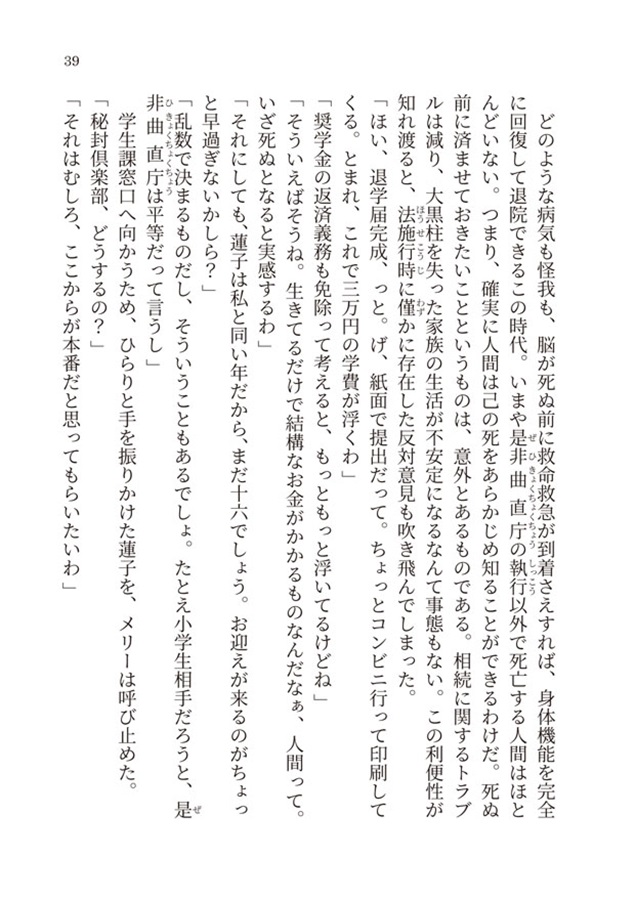 39
どのような病気も怪我も、脳が死ぬ前に救命救急が到着さえすれば、身体機能を完全
に回復して退院できるこの時代。いまや是非曲直庁の執行以外で死亡する人間はほと
んどいない。つまり、確実に人間は己の死をあらかじめ知ることができるわけだ。死ぬ
前に済ませておきたいことというものは、意外とあるものである。相続に関するトラブ
ルは減り、大黒柱を失った家族の生活が不安定になるなんて事態もない。この利便性が
知れ渡ると、法施行時に僅かに存在した反対意見も吹き飛んでしまった。
「ほい、退学届完成、っと。げ、紙面で提出だって。ちょっとコンビニ行って印刷して
くる。とまれ、これで三万円の学費が浮くわ」
「奨学金の返済義務も免除って考えると、もっともっと浮いてるけどね」
「そういえばそうね。生きてるだけで結構なお金がかかるものなんだなぁ、人間って。
いざ死ぬとなると実感するわ」
「それにしても、蓮子は私と同い年だから、まだ十六でしょう。お迎えが来るのがちょっ
と早過ぎないかしら？」
「乱数で決まるものだし、そういうこともあるでしょ。たとえ小学生相手だろうと、是
非曲直庁は平等だって言うし」
学生課窓口へ向かうため、ひらりと手を振りかけた蓮子を、メリーは呼び止めた。
「秘封倶楽部、どうするの？」
「それはむしろ、ここからが本番だと思ってもらいたいわ」